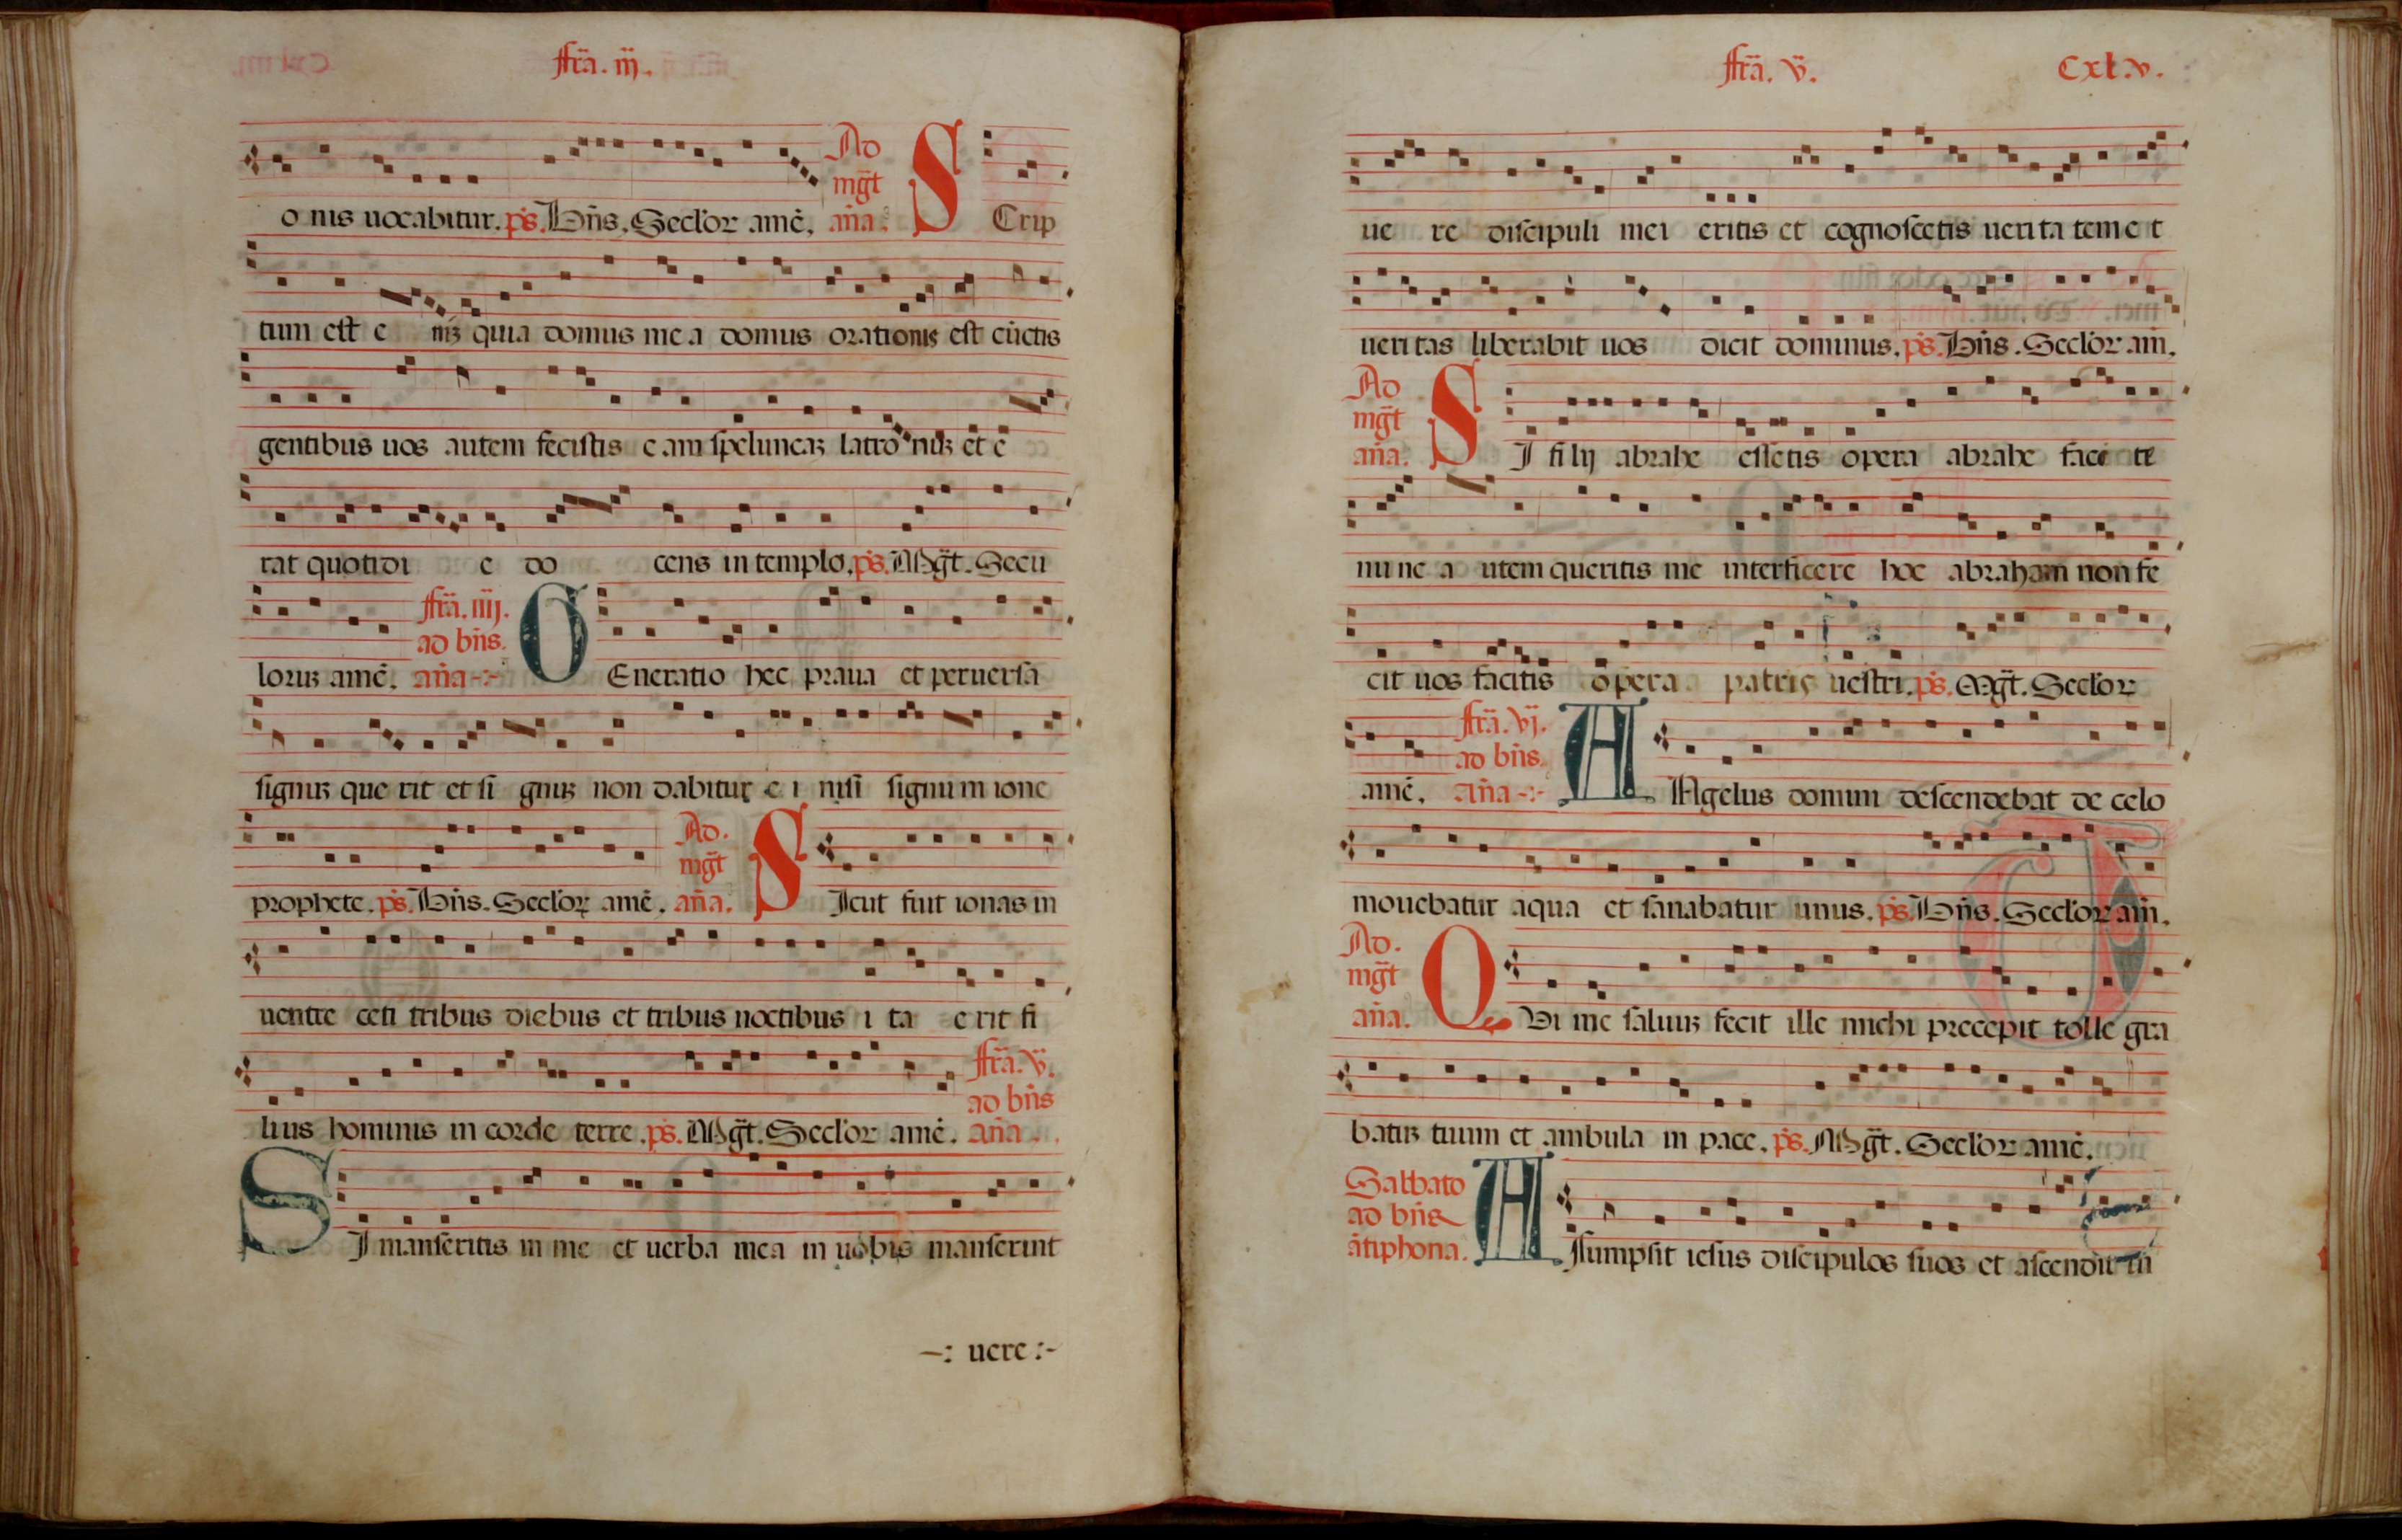 ffr̃a. iij.
o nis uocabitur. p̃s. Dñs. Seclor̃ amē. Ad mg̃t aña. S Crip
tum est e nĩꝫ quia domus me a domus orationis est cũctis
gentibus uos autem fecistis e am speluncaꝫ latro nuꝫ et e
rat quotidi e do cens in templo. p̃s. Mg̃t. Secu
loruꝫ amē. ffr̃a. iiij. ad bñs. aña G Eneratio hec praua et peruersa
signuꝫ que rit et si gnuꝫ non dabitur e i nisi signu m ione
prophete. p̃s. Dñs. Seclor̃ amē. Ad. mg̃t aña. S Icut fuit ionas in
uentre ceti tribus diebus et tribus noctibus i ta e rit fi
lius hominis in corde terre. p̃s. Mg̃t. Seclor̃ amē. ffr̃a. v. ad bñs aña.
S I manseritis in me et uerba mea in uobis manserint
-: uere :-
ffr̃a. v. Cxl.v.
ue re discipuli mei eritis et cognoscetis ueri ta tem e t
ueri tas liberabit uos dicit dominus. p̃s. Dñs. Seclor̃ am̃.
Ad mg̃t aña. S I fi lij abrahe essetis opera abrahe faci te
nu nc a utem queritis me interficere hoc abraham non fe
cit uos facitis opera patris uestri. p̃s. Mg̃t. Seclor̃
amē. ffr̃a. vj. ad bñs. aña A Ngelus domini descendebat de celo
mouebatur aqua et sanabatur unus. p̃s. Dñs. Seclor̃ am̃.
Ad. mg̃t aña. Q Vi me saluuꝫ fecit ille michi precepit tolle gra
batuꝫ tuum et ambula in pace. p̃s. Mg̃t. Seclor̃ amē.
Sabbato ad bñs ãtiphona. A Ssumpsit iesus discipulos suos et ascendit in